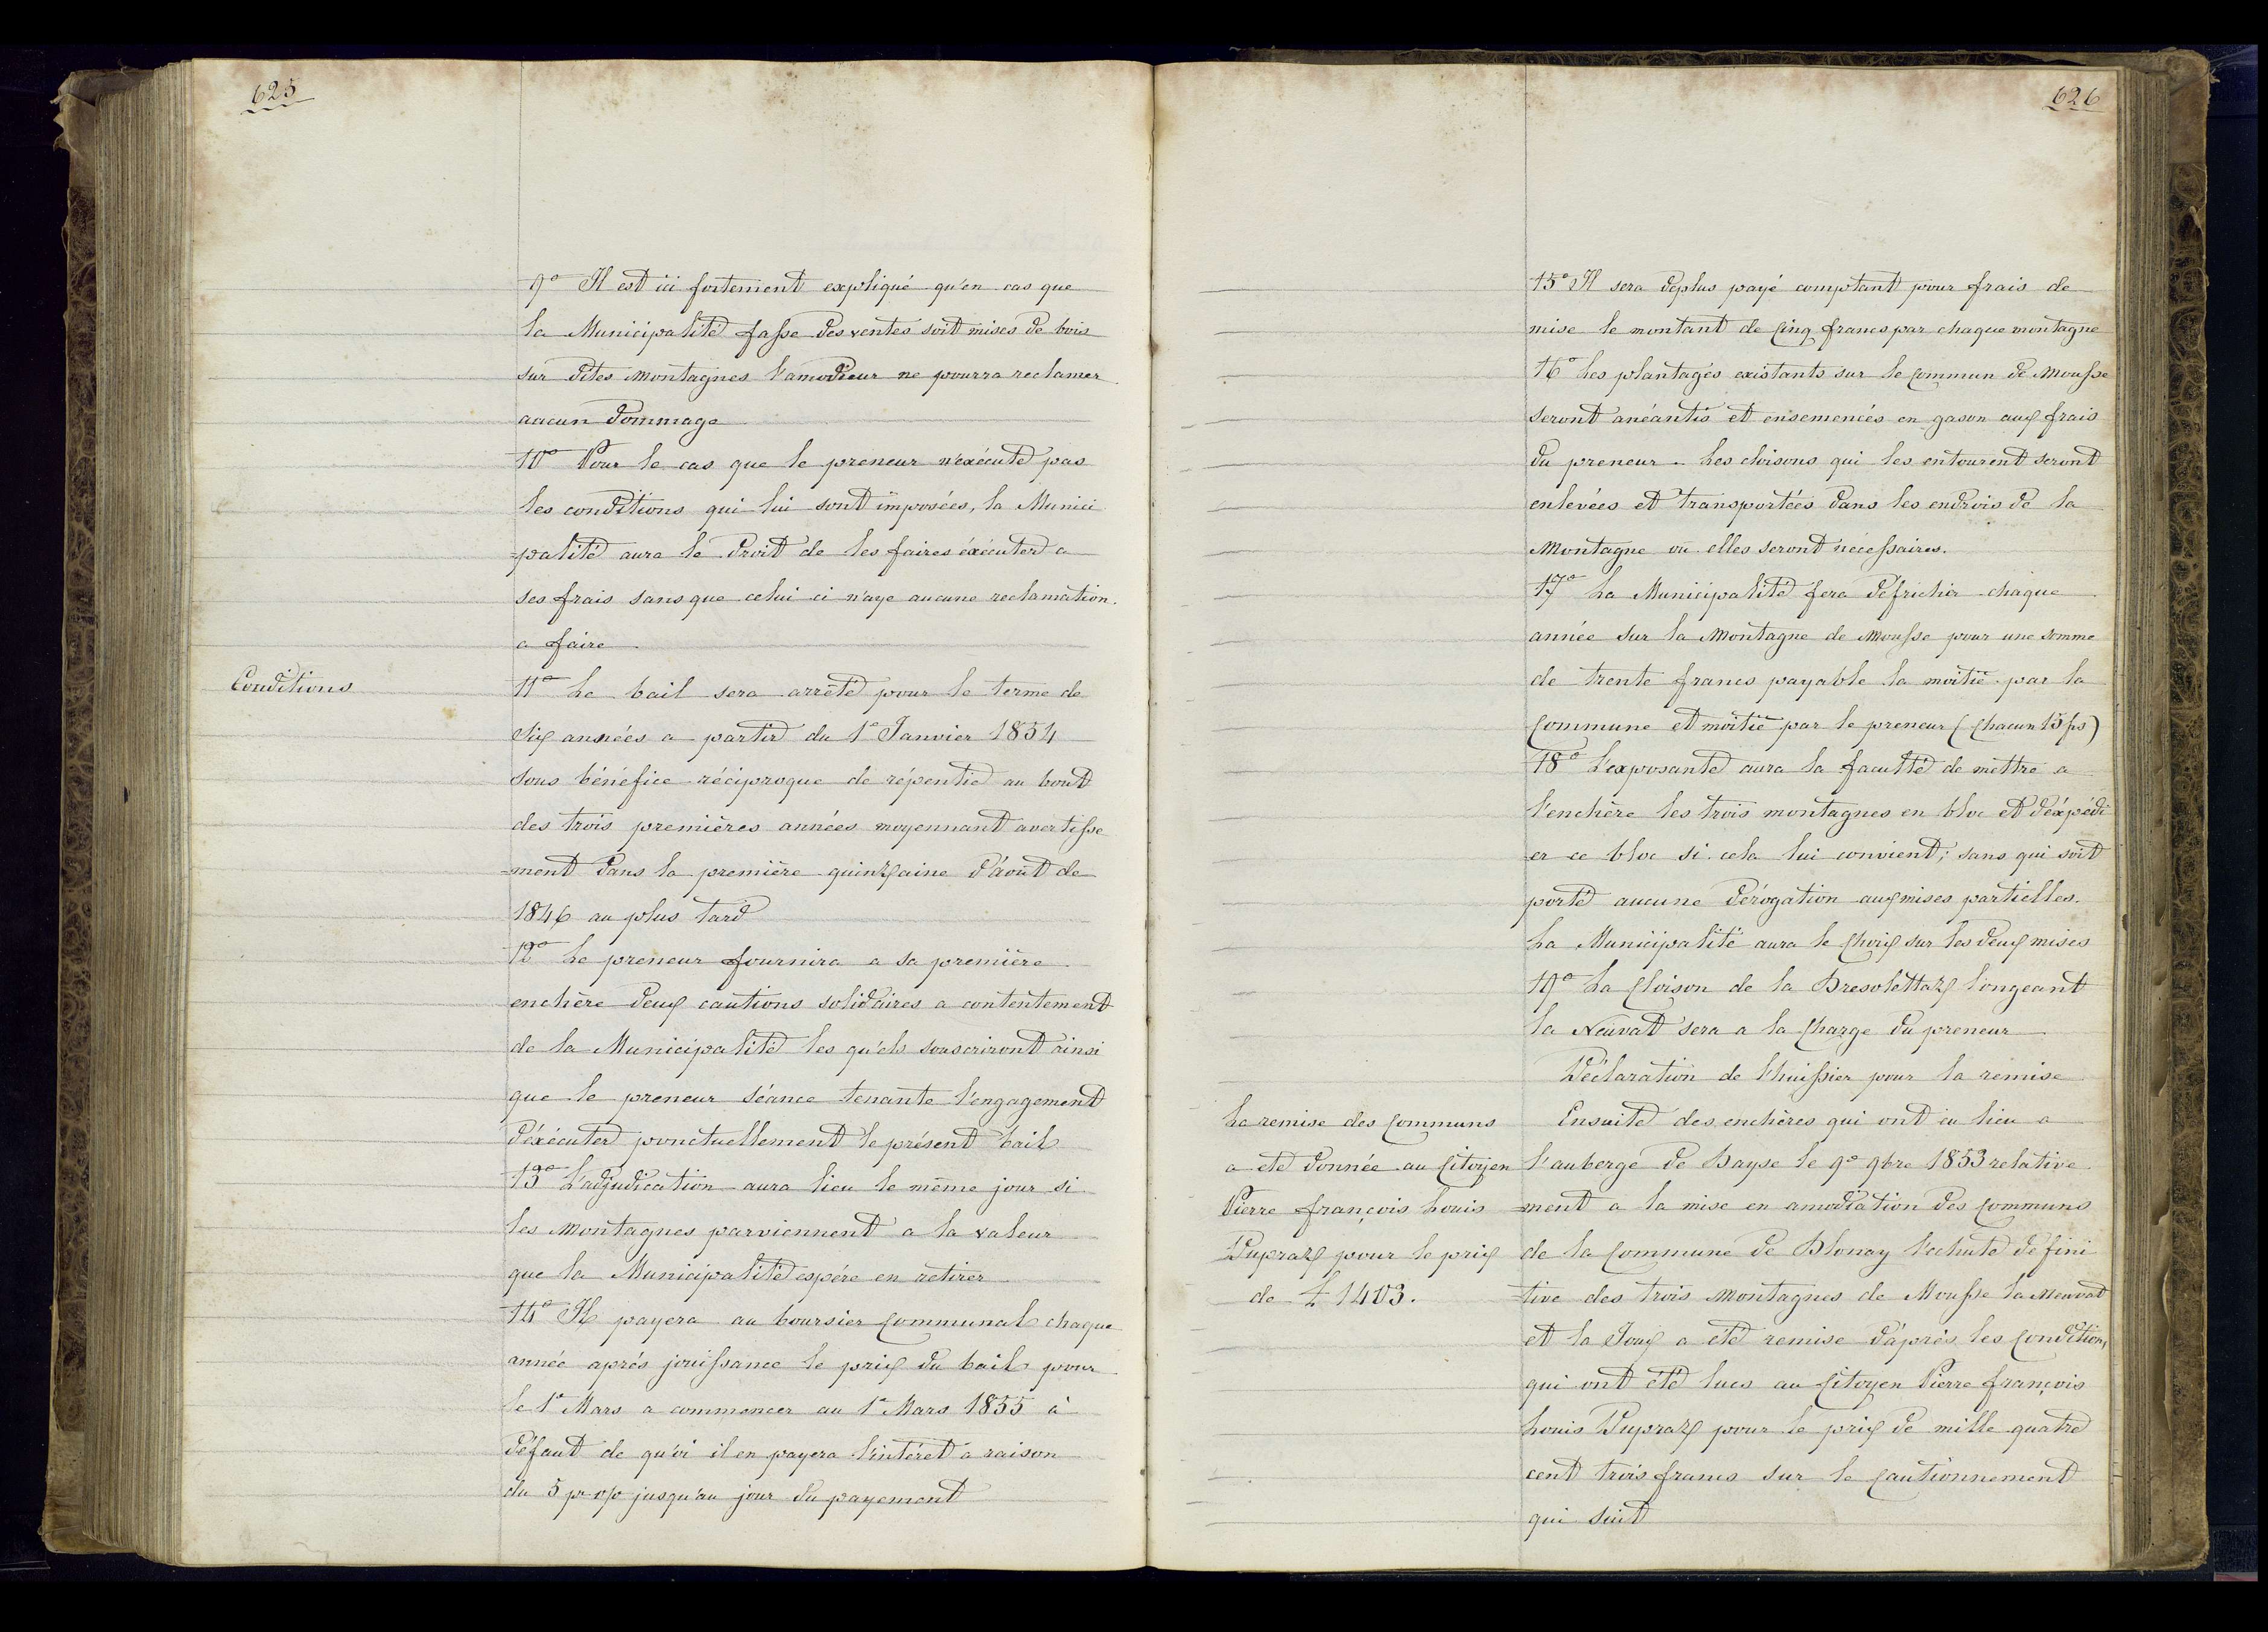 625
9° Il est ici fortement expliqué qu'en cas que
la Municipalité fasse des ventes soit mises de bois
sur dites Montagnes l'amodieur ne pourra reclamer
aucun dommage
10° Pour le cas que le preneur n'exécute pas
les conditions qui lui sont imposées, la Munici
=palité aura le droit de les faires éxécuter a
ses frais sans que celui ci n'aye aucune reclamation
a faire
Conditions
11° Le bail sera arrêté pour le terme de
Six années a partir du 1° Janvier 1854
sous bénéfice réciproque de répentie au bout
des trois premières années moyennant avertisse
=ment dans la première quinzaine d'août de
1846 au plus tard
12° Le preneur fournira a sa première
enchère deux cautions solidaires a contentement
de la Municipalité les qu'els souscriront ainsi
que le preneur séance tenante l'engagement
d'éxécuter ponctuellement le présent bail
13° L'adjudication aura lieu le même jour si
les Montagnes parviennent a la valeur
que la Municipalité espére en retirer
14° Il payera au boursier Communal chaque
année aprés jouissance le prix du bail pour
le 1° Mars a commencer au 1° Mars 1855 à
défaut de qu'oi il en payera l'intéret à raison
du 5 pr o/o jusqu'au jour du payement
626
15° Il sera deplus payé comptant pour frais de
mise le montant de Cinq francs par chaque montagne
16° Les plantages existants sur le Commun de Mousse
seront anéantis et ensemencés en gason aux frais
du preneur. Les cloisons qui les entourent seront
enlevées et transportées dans les endrois de la
Montagne où elles seront nécessaires.
17° La Municipalité fera défricher chaque
année sur la Montagne de Mousse pour une somme
de trente francs payable la moitié par la
Commune et moitié par le preneur (Chacun 15 fs)
18° L'exposante aura la faculté de mettre a
l'enchère les trois montagnes en bloc et d'éxpédi
er ce bloc si cela lui convient; sans qui soit
porté aucune dérogation aux mises partielles.
La Municipalité aura le Choix sur les deux mises
19° La Cloison de la Bresolettaz longeant
la Neuvat sera a la Charge du preneur
Déclaration de l'huissier pour la remise
La remise des Communs
a été donnée au Citoyen
Pierre françois Louis
Dupraz pour le prix
de £ 1403.
Ensuite des enchères qui ont eu lieu a
l'auberge de Bayse le 9° 9bre 1853 relative
=ment a la mise en amodiation des Communs
de la Commune de Blonay l'echute défini
=tive des trois Montagnes de Mousse la Neuvat
et la Joux a été remise d'aprés les Condition,
qui ont été lues au Citoyen Pierre françois
Louis Dupraz pour le prix de mille quatre
cent trois francs sur le Cautionnement
qui suit